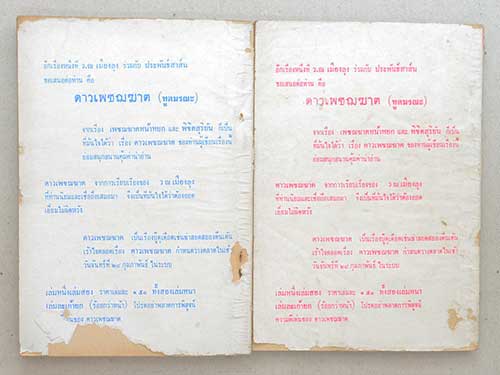 อีกเรื่องหนึ่งที่ ว.ณ เมืองลุง ร่วมกับ ประพันธ์สาส์น
ขอเสนอต่อท่าน คือ
ดาวเพชฌฆาต (ทูตมรณะ)
จากเรื่อง เพชฌฆาตหน้าหยก และ พิชิตสุริยัน ก็เป็น
ที่มั่นใจได้ว่า เรื่อง ดาวเพชฌฆาต ของท่านผู้เขียนเรื่องนี้
ย่อมสนุกสนานคุ้มค่าน่าอ่าน
ดาวเพชฌฆาต จากการเรียบเรียงของ ว ณ เมืองลุง
ที่ท่านนิยมและเชื่อถือเสมอมา จึงเป็นที่มั่นใจได้ว่าต้องยอด
เยี่ยมไม่ผิดหวัง
ดาวเพชฌฆาต เป็นเรื่องบู๊ดุเดือดเข้มข้นสอดสยองตื่นเต้น
เร้าใจตลอดเรื่อง ดาวเพชฌฆาต กำหนดวางตลาดในเช้า
วันจันทร์ที่ ๒๔ กุมภาพันธ์ นี้
เล่มหนึ่งเล่มสอง ราคาเล่มละ ๑๕ ทั้งสองเล่มหนา
เล่มละ (ร้อยกว่าหน้า) โปรดอย่าพลาดการพิสูจน์
ของ ดาวเพชฌฆาต
อีกเรื่องหนึ่งที่ ว.ณ เมืองลุง ร่วมกับ ประพันธ์สาส์น
ขอเสนอต่อท่าน คือ
ดาวเพชฌฆาต (ทูตมรณะ)
จากเรื่อง เพชฌฆาตหน้าหยก และ พิชิตสุริยัน ก็เป็น
ที่มั่นใจได้ว่า เรื่อง ดาวเพชฌฆาต ของท่านผู้เขียนเรื่องนี้
ย่อมสนุกสนานคุ้มค่าน่าอ่าน
ดาวเพชฌฆาต จากการเรียบเรียงของ ว ณ เมืองลุง
ที่ท่านนิยมและเชื่อถือเสมอมา จึงเป็นที่มั่นใจได้ว่าต้องยอด
เยี่ยมไม่ผิดหวัง
ดาวเพชฌฆาต เป็นเรื่องบู๊ดุเดือดเข้มข้นสอดสยองตื่นเต้น
เร้าใจตลอดเรื่อง ดาวเพชฌฆาต กำหนดวางตลาดในเช้า
วันจันทร์ที่ ๒๔ กุมภาพันธ์ นี้
เล่มหนึ่งเล่มสอง ราคาเล่มละ ๑๕ ทั้งสองเล่มหนา
เล่มละ (ร้อยกว่าหน้า) โปรดอย่าพลาดการพิสูจน์
ความดีเด่นของ ดาวเพชฌฆาต